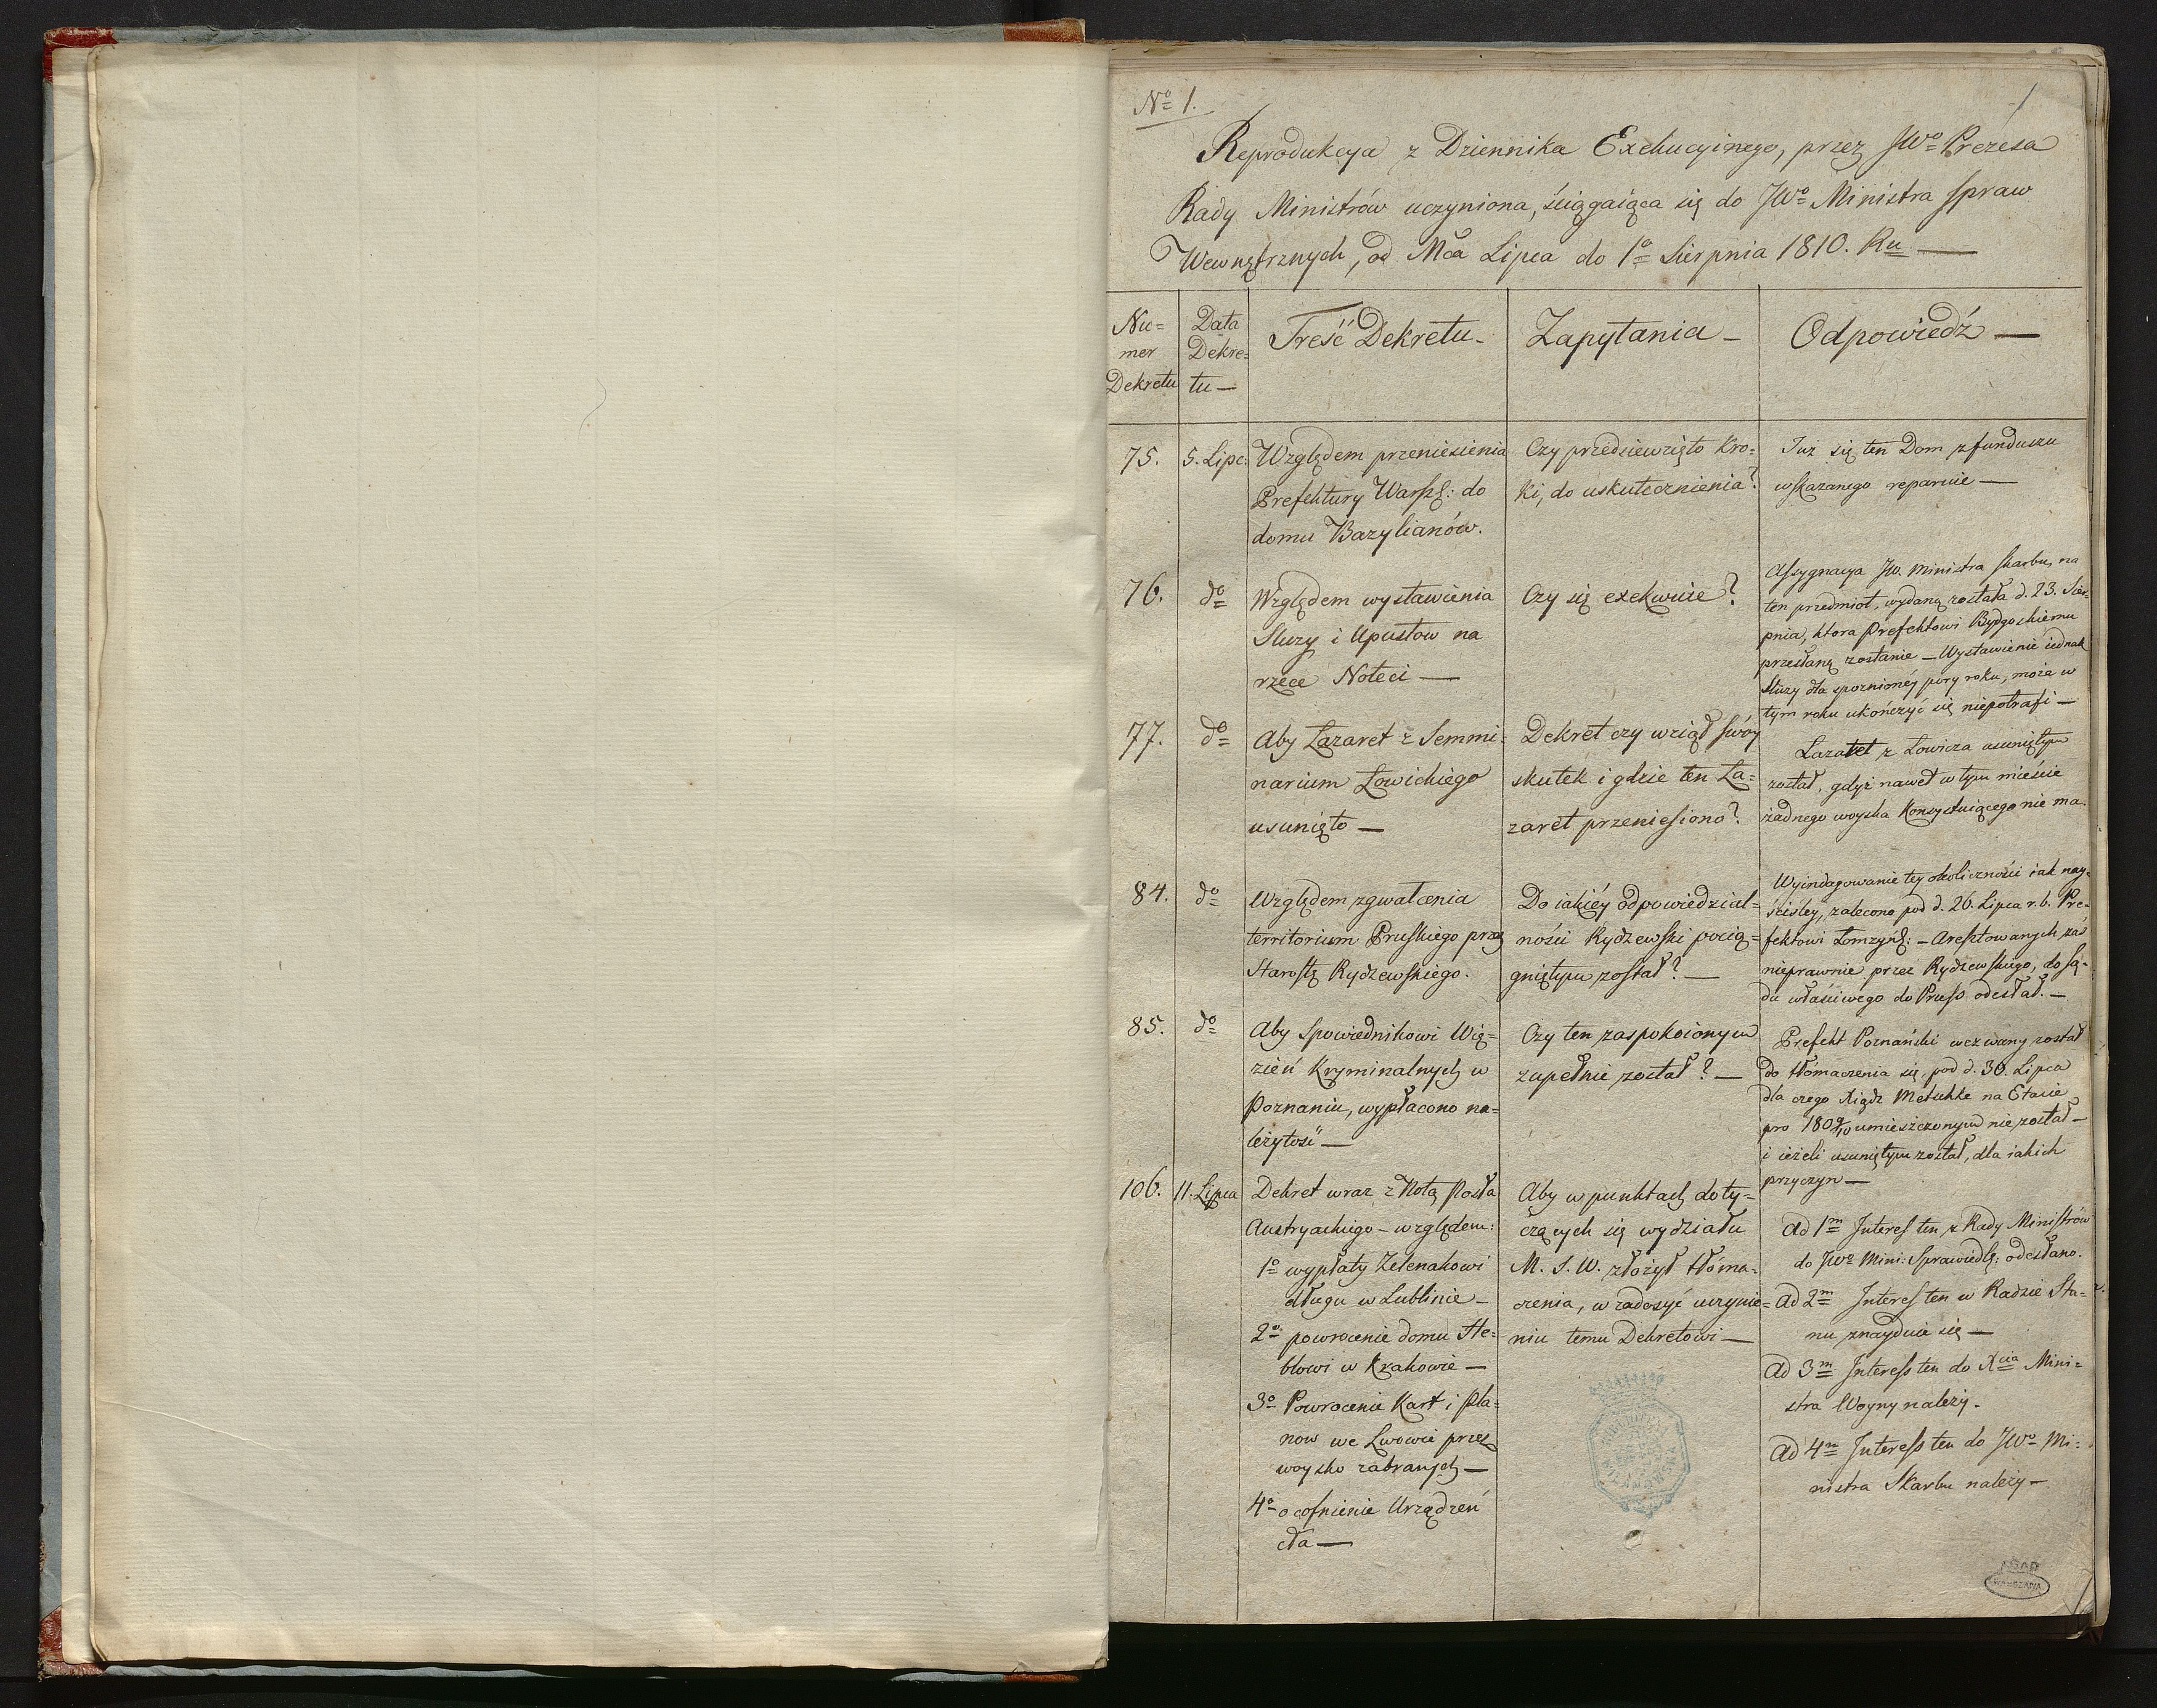 Nº 1.
1
Reprodukcya z Dziennika Exekucyinego, przez JWº Prezesa
Rady Ministrów uczyniona, ściągaiąca się do JWº Ministra Spraw
Wewnętrznych, od Mca Lipca do 1º Sierpnia 1810. Ru —
Nu=
mer
Dekretu
Data
Dekre=
tu —
Treść Dekretu -
Zapytania -
Odpowiedź —
75.
5. Lipc:
Względem przeniesienia
Prefektury Warsz: do
domu Bazylianów.
Czy przedsiewzięto Kro=
ki, do uskutecznienia?
Iuż się ten Dom z funduszu
wskazanego reparuie —
76.
dº
Względem wystawienia
Sluzy i Upustow na
rzece Noteci —
Czy się exekwuie?
Assygnacya JW. Ministra Skarbu, na
ten przedmiot, wydaną została d. 23. Sier=
pnia, ktora Prefektowi Bydgoskiemu
przesłaną zostanie — Wystawienie iednak
Sluzy dla spoznionéy pory roku, moża w
tym roku ukończyć się niepotrafi —
77.
dº
Aby Lazaret z Semmi=
narium Łowickiego
usunięto —
Dekret czy wziął swóy
skutek i gdzie ten La=
zaret przeniesiono?
Lazaret z Łowicza usuniętym
został, gdyż nawet w tym mieście
żadnego woyska Konsystuiącego nie ma.
84.
dº
Względem zgwałcenia
territorium Pruskiego przez
Starostę Rydzewskiego.
Do iakiéy odpowiedzial=
ności Rydzewski pocią=
gniętym został? —
Wyindagowanie tey okoliczności iak nay=
ściśley, zalecono pod d. 26. Lipca r. b. Pre=
fektowi Łomzyńs: — Aresztowanych zaś
nieprawnie przez Rydzewskiego, do Są=
du właściwego do Pruss odesłał. —
85.
dº
Aby Spowiednikowi Wię=
zień Kryminalnych w
Poznaniu, wypłacono na=
leżytość —
Czy ten zaspokoionym
zupełnie został? —
Prefekt Poznański wezwany został
do tłómaczenia się, pod d. 30. Lipca
dla czego Xiądz Metschke na Etacie
pro 1809/10 umieszczonym nie został —
i ieżeli usuniętym został, dla iakich
przyczyn —
106.
11. Lipca
Dekret wraz z Notą Posła
Austryackiego — względem:
1º wypłaty Zelenakowi
długu w Lublinie —
2º powrocenie domu Ste=
blowi w Krakowie —
3º Powrocenie Kart i Pla=
now we Lwowie przez
woysko zabranych —
4º o cofnienie Urządzeń
cła —
Aby w punktach doty=
czących się wydziału
M. S. W. złożył tłóma=
czenia, w zadosyć uczynie=
niu temu Dekretowi —
Ad 1m Interes ten z Rady Ministrów
do JWº Mini: Sprawiedl: odesłano.
Ad 2m Interes ten w Radzie Sta=
nu znayduie się —
Ad 3m Interess ten do Xcia Mini=
stra Woyny należy.
Ad 4m Interess ten do JWº Mi=
nistra Skarbu należy —
AGAD
WARSZAWA